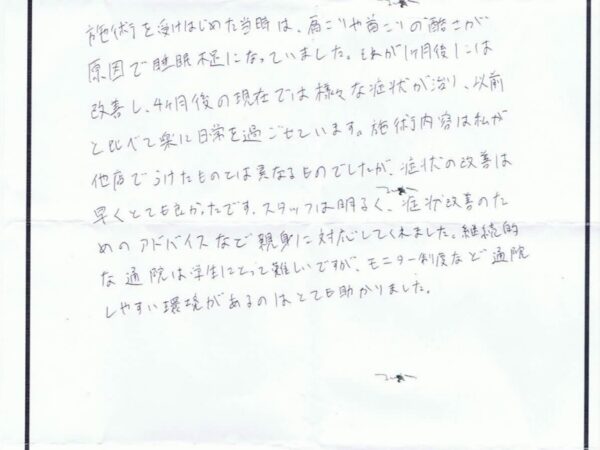 施術を受けはじめた当時は、肩こりや首こりの酷さが
原因で睡眠不足になっていました。それが1ヶ月後には
改善し、4ヶ月後の現在では様々な症状が治り、以前
と比べて楽に日常を過ごせています。施術内容は私が
他店でうけたものとは異なるものでしたが、症状の改善は
早くとても良かったです。スタッフは明るく、症状改善のた
めのアドバイスなど親身に対応してくれました。継続的
な通院は学生にとって難しいですが、モニター制度など通院
しやすい環境があるのはとても助かりました。